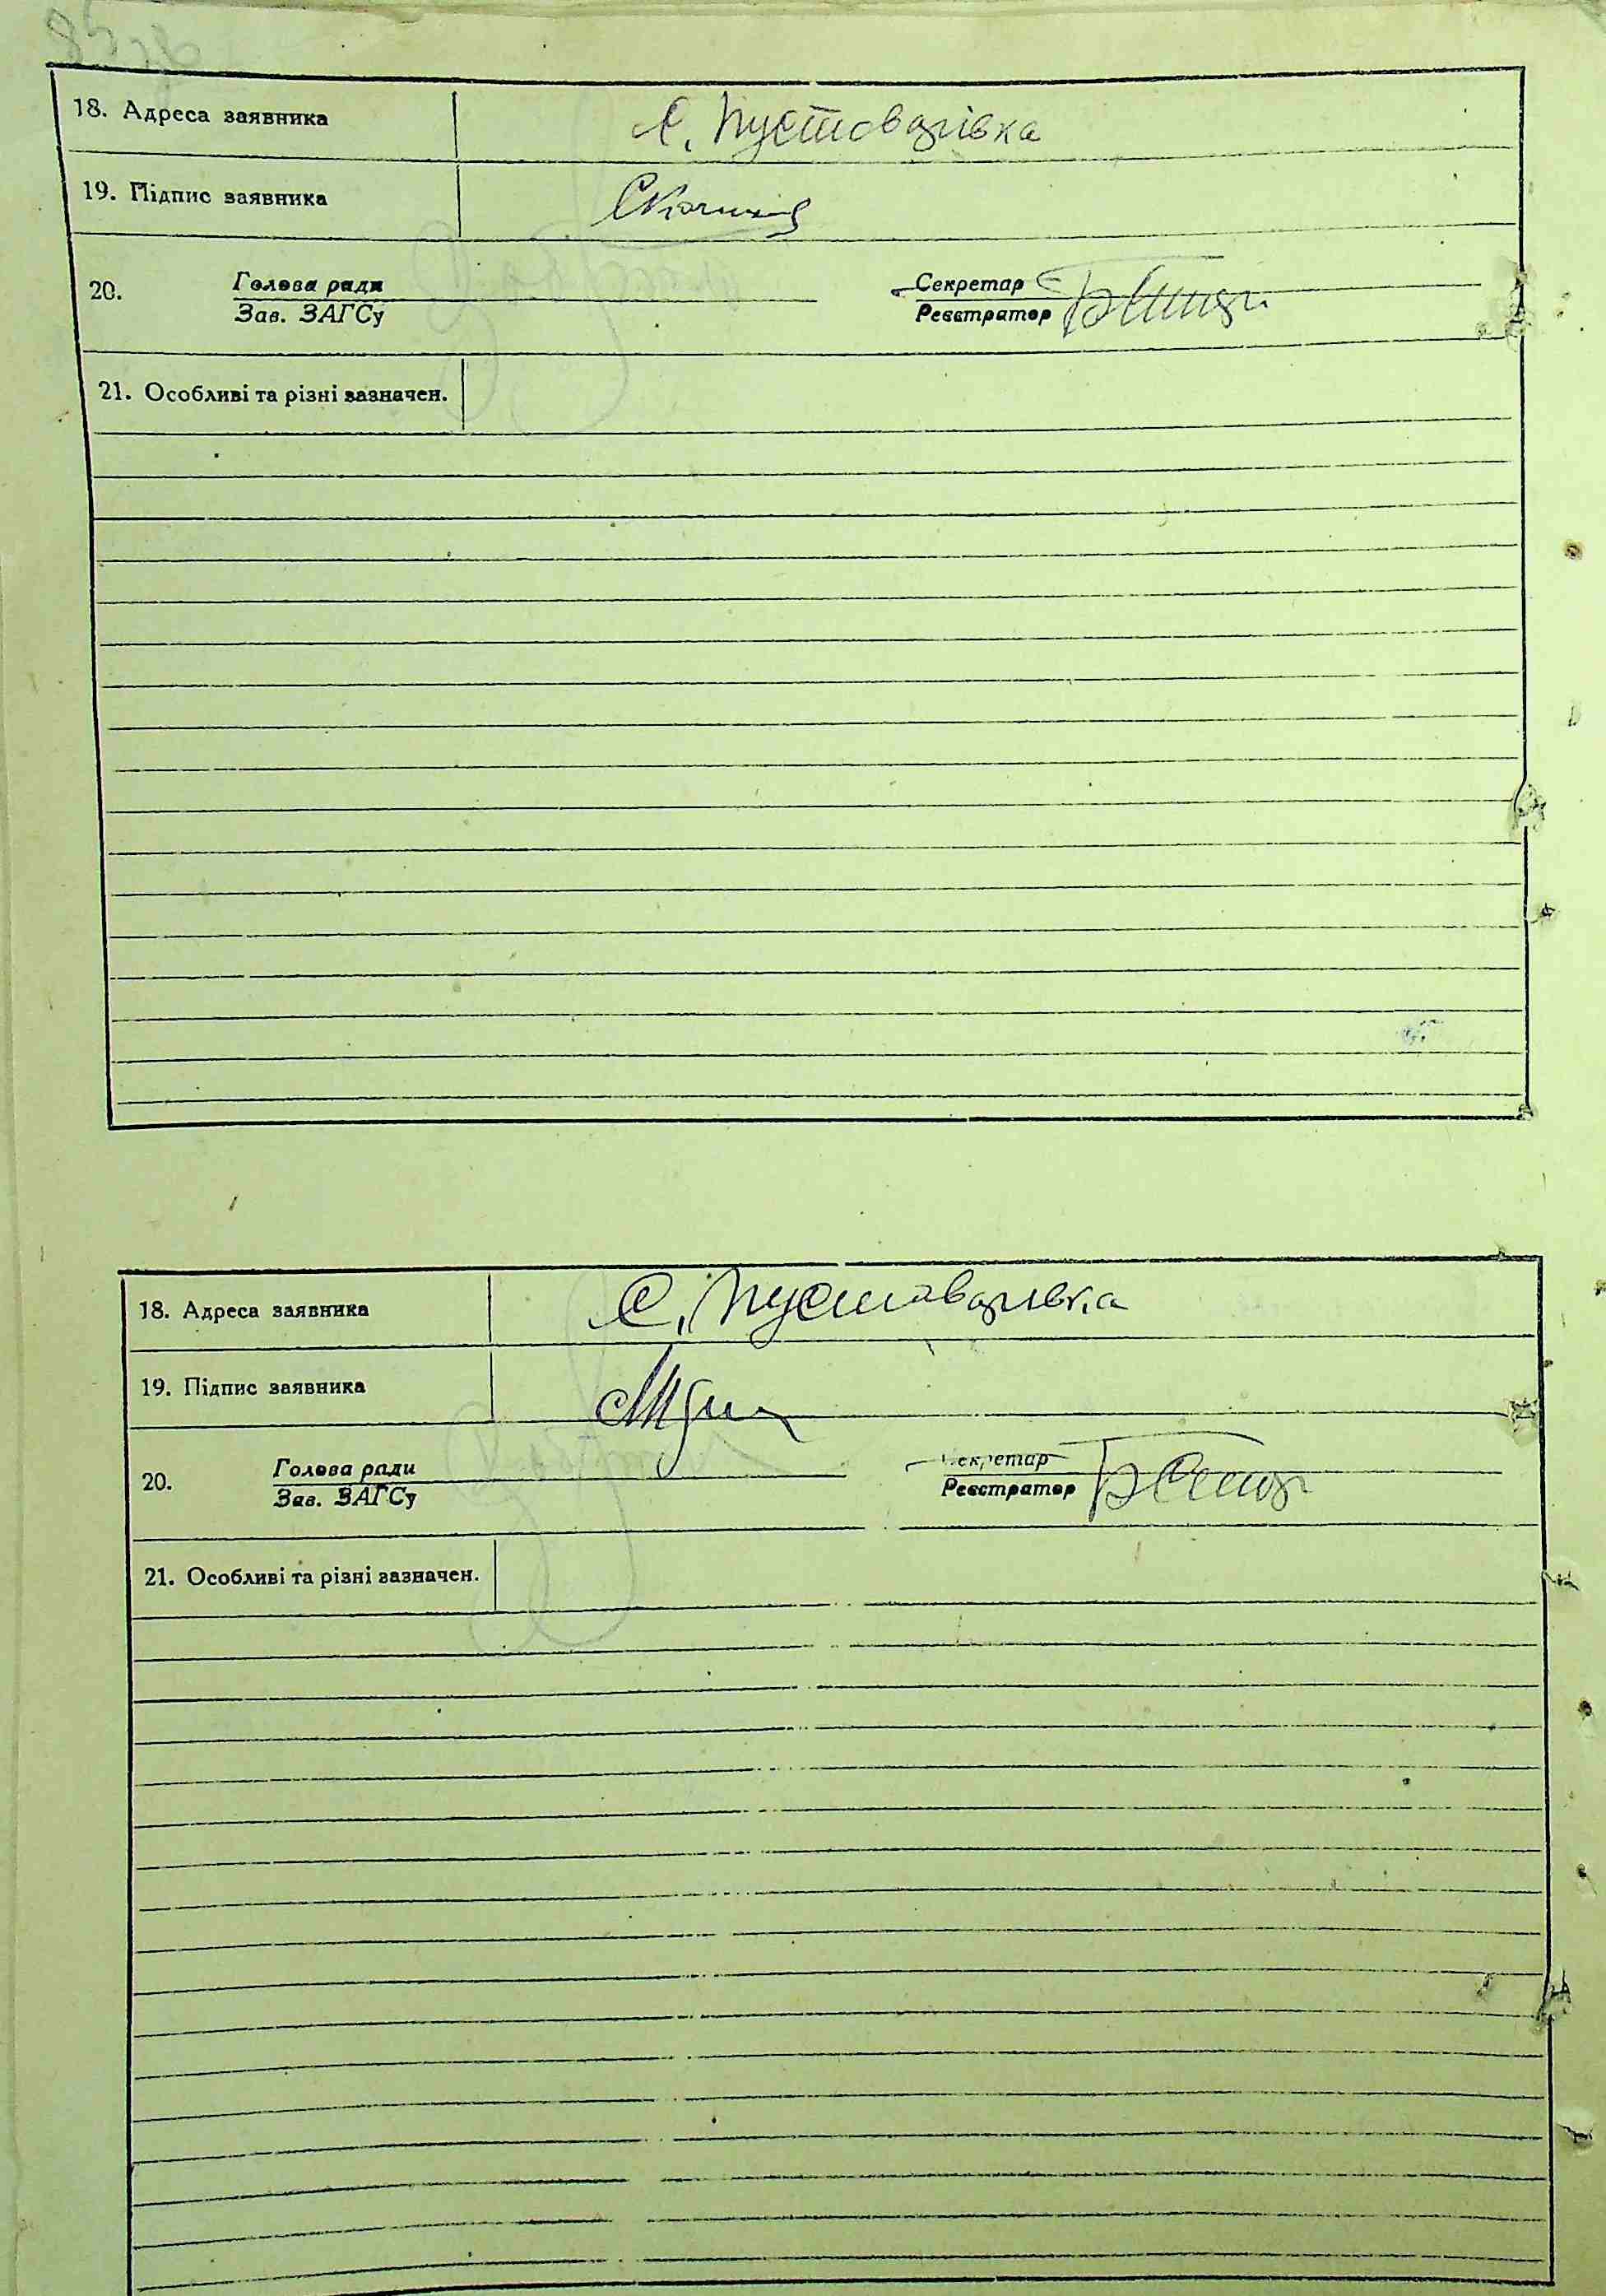 18. Адреса заявника с. Пустоварівка
19. Підпис заявника
20. Голова ради Секретар
Зав. ЗАГСу Реєстратор
21. Особливі та різні зазначен.
18. Адреса заявника С. Пустоварівка
19. Підпис заявника
20. Голова ради Секретар
Зав. ЗАГСу Реєстратор
21. Особливі та різні зазначен.